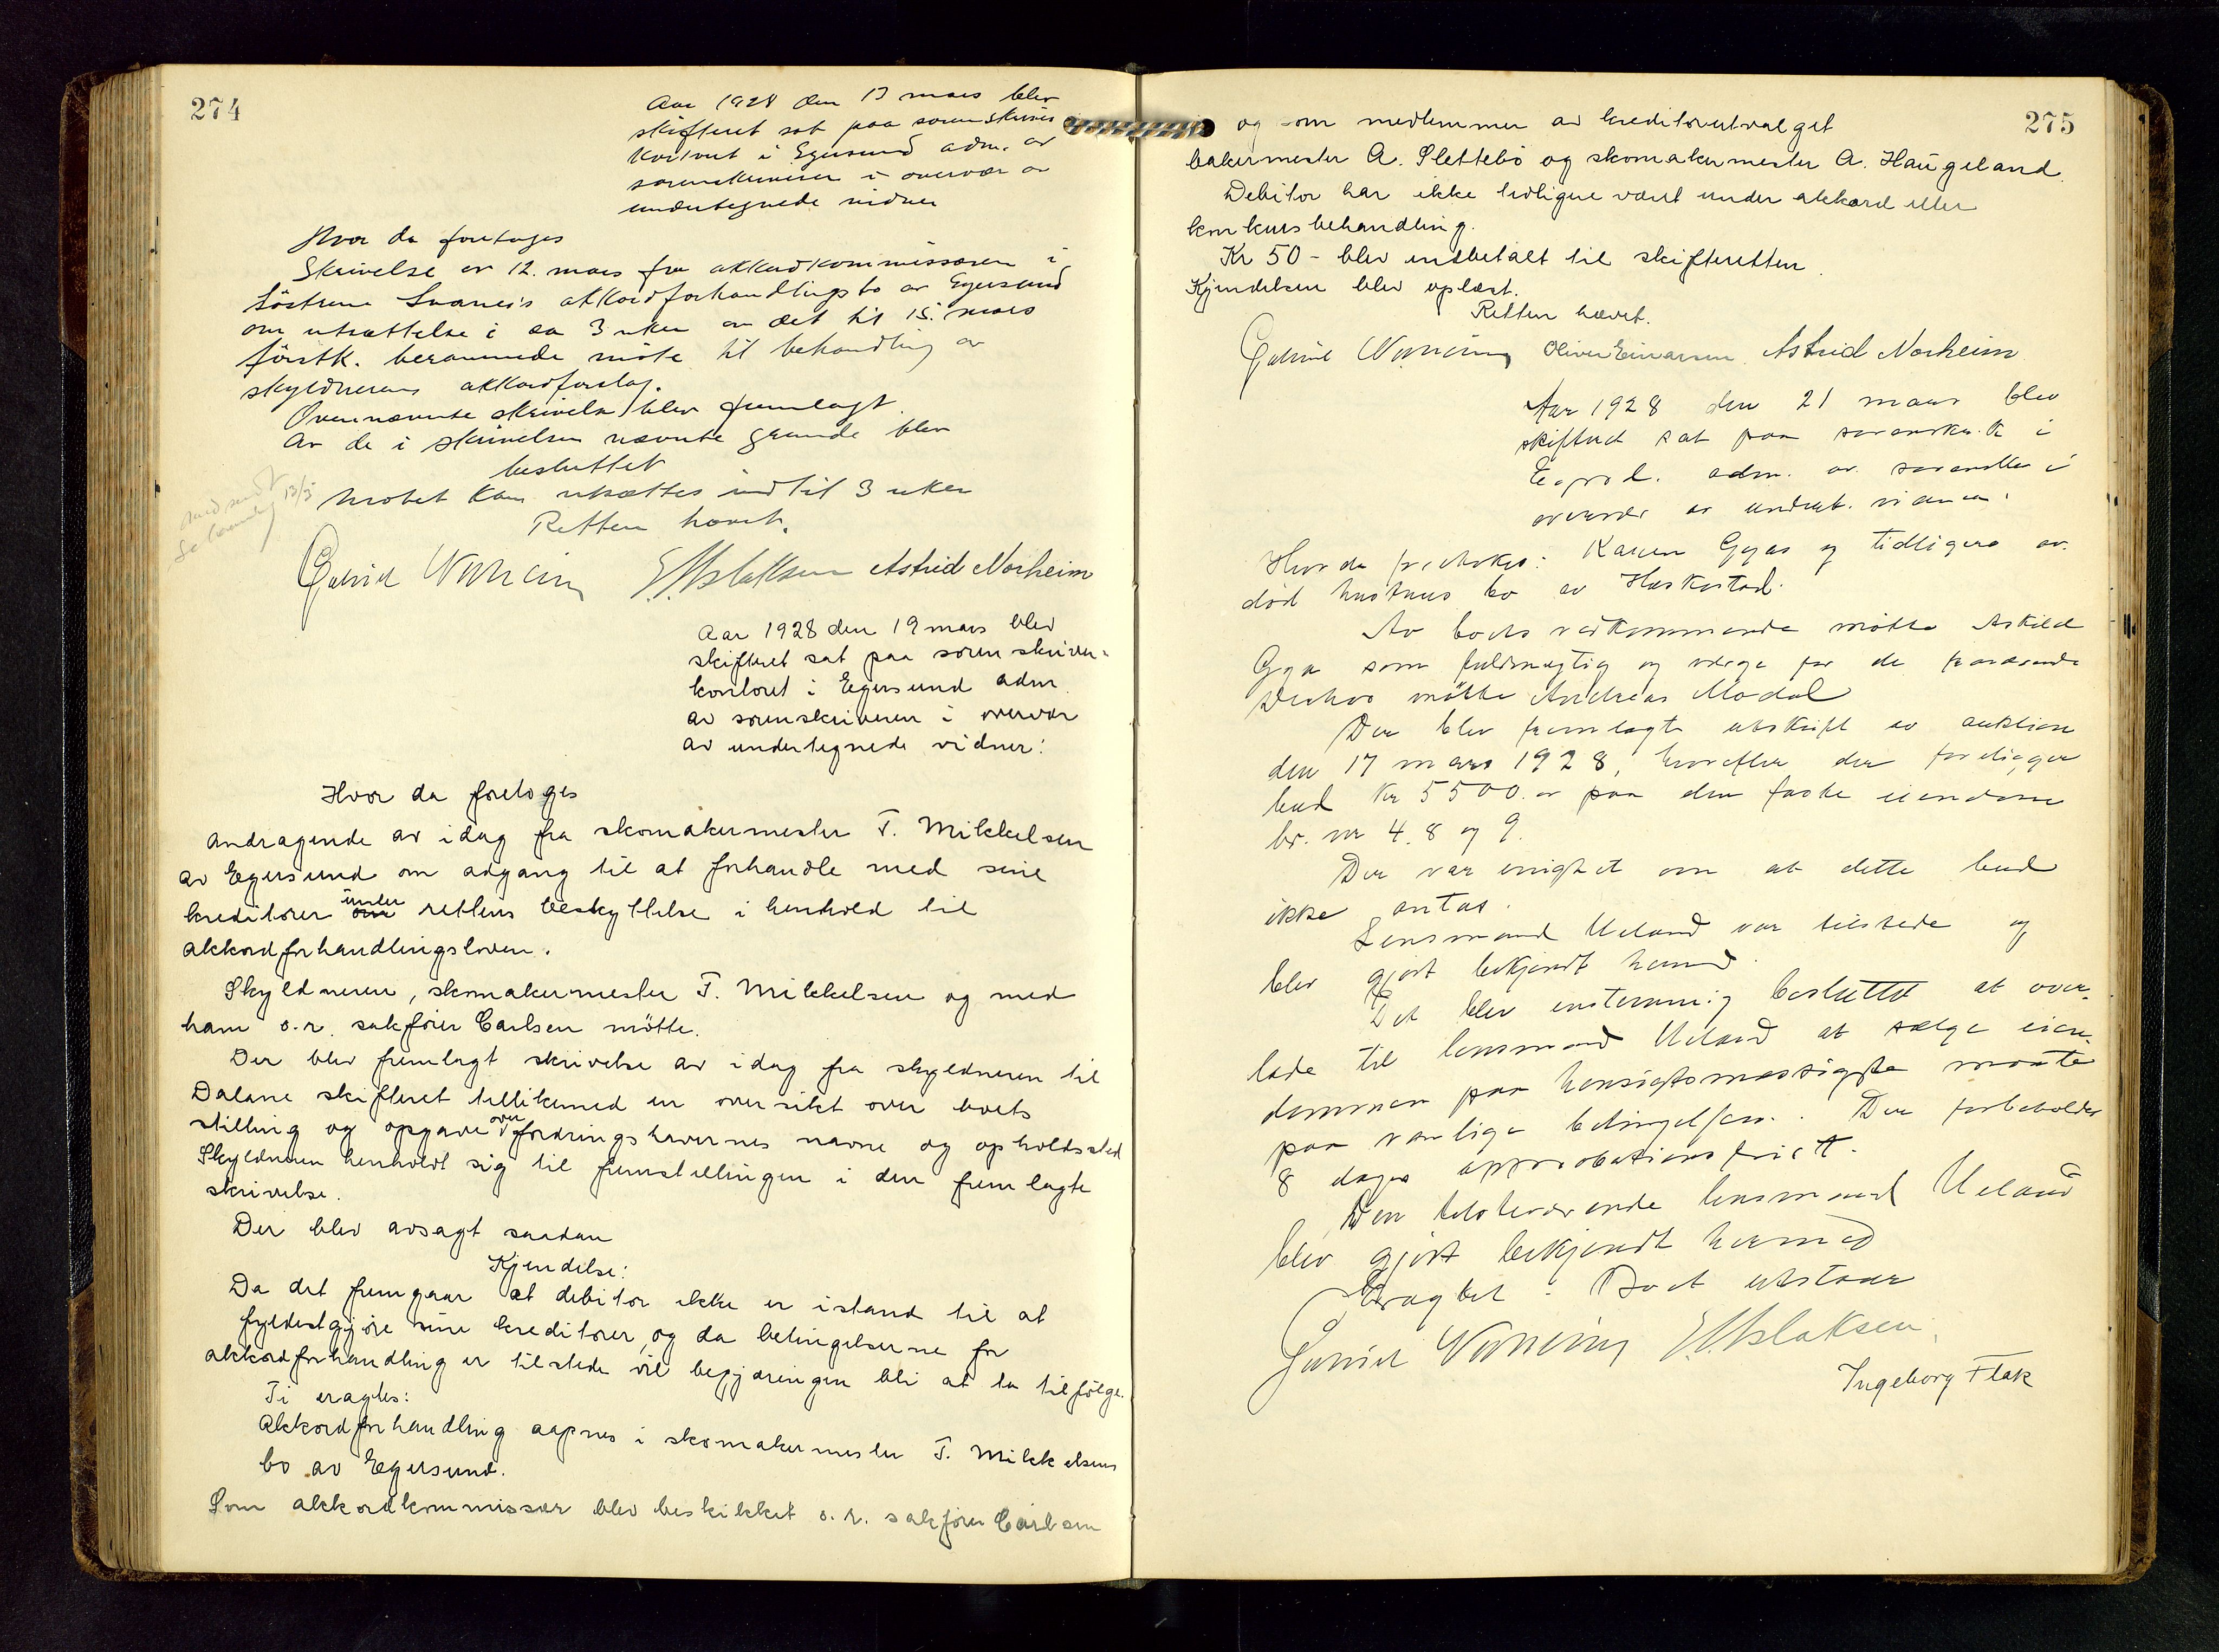 274
Aar 1928 den 13 mars blev
skifteret sat paa sorenskriver
kontoret i Egersund adm. av
sorenskriveren i overvær av
undertegnede vidner
Hvor da foretoges
Skrivelse av 12. mars fra akkordkommissæren i
Söstrene Svaneis akkordforhandlingsbo av Egersund
om utsættelse i ca 3 uker av det til 15. mars
förstk. berammede möte til behandling av
skyldnerens akkordforslag.
Ovennævnte skrivelse blev fremlagt.
Av de i skrivelsen nævnte grunde blev
besluttet
Motet kan utsættes indtil 3 uker
13/3
Retten hævet.
Gabriel E. Aslaksen Astrid Norheim
Aar 1928 den 19 mars blev
skifteret sat paa sorenskriver-
kontoret i Egersund adm.
av sorenskriveren i overvær
av undertegnede vidner:
Hvor da foretoges
andragende av idag fra skomakermester T. Mikkelsen
av Egersund om adgang til at forhandle med sine
kreditorer om under rettens beskyttelse i henhold til
akkordforhandlingsloven.
Skyldneren, skomakermester T. Mikkelsen og med
ham o.r. sakförer Carlsen mötte.
Der blev fremlagt skrivelse av idag fra skyldneren til
Dalane skifteret tillikemed en oversikt over boets
stilling og opgave over fordringshavernes navne og opholdssted
Skyldneren henholdt sig til fremstillingen i den fremlagte
skrivelse.
Der blev avsagt saadan
Kjendelse:
Da det fremgaar at debitor ikke er istand til at
fyldestgjöre sine kreditorer, og da betingelserne for
akkordforhandling er tilstede vil begjæringen bli at ta tilfölge.
Ti eragtes:
Akkordforhandling aapnes i skomakermester T. Mikkelsens
bo av Egersund.
Som akkordkommissær blev beskikket o.r. sakförer Carlsen
275
og som medlemmer av kreditorutvalget
bakermester A. Slettebö og skomakermester A. Haugeland.
Debitor har ikke tidligere været under akkord eller
konkursbehandling.
Kr 50 - blev indbetalt til skifteretten.
Kjendelsen blev oplæst.
Retten hævet.
Gabriel Oliver Einarsen Astrid Norheim
Aar 1928 den 21 mars blev
skifteret sat paa sorenskr. k i
Egersd. adm. av sorenskr i
overvær av undert. vidner:
Hvor da foretokes: Karen Gyas og tidligere av.
död hustrus bo av Heskestad.
Av boets vedkommende mötte Askild
Gya som fuldmægtig og værge for de fraværende
Desuten mötte Andreas Modal
Der blev fremlagt utskrift av auktion
den 17 mars 1928, hvorefter der foreligger
bud Kr 5500.- paa den faste eiendom
br. nr 4. 8 og 9.
Der var enighet om at dette bud
ikke antas.
Lensmand Ueland var tilstede og
blev gjort bekjendt hermed.
Det blev enstemmig besluttet at over-
lade til lensmand Ueland at sælge eien-
dommen paa hensigtsmæssigste maate
paa vanlige betingelser. Der forbeholdes
8 dages approbationsfrist.
Den tilstedeværende lensmand Ueland
blev gjort bekjendt hermed
Eragtet: Boet utstaar
Gabriel E. Aslaksen
Ingeborg Flak